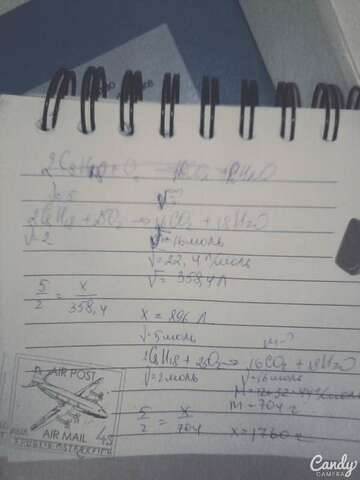 2C8H18+O2 → CO2+H2O
√-5 √-?
2C8H18+25O2→16CO2+18H2O
√-2 √-16моль
√=22,4 л/моль
√= 358,4л
5/2 = x/358,4
x = 896 л
√-5моль m-?
2C8H18+25O2→16CO2+18H2O
√=2моль √-16моль
M=12+32=44г/моль
m-704 г
5/2 = x/704 x=1760г
AIR POST
AIR MAIL 45
Candy
CAMERA